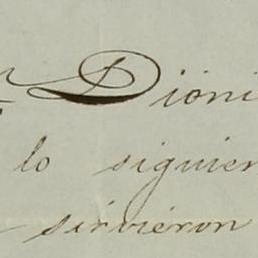 Dioni
lo siguien
sirvieron